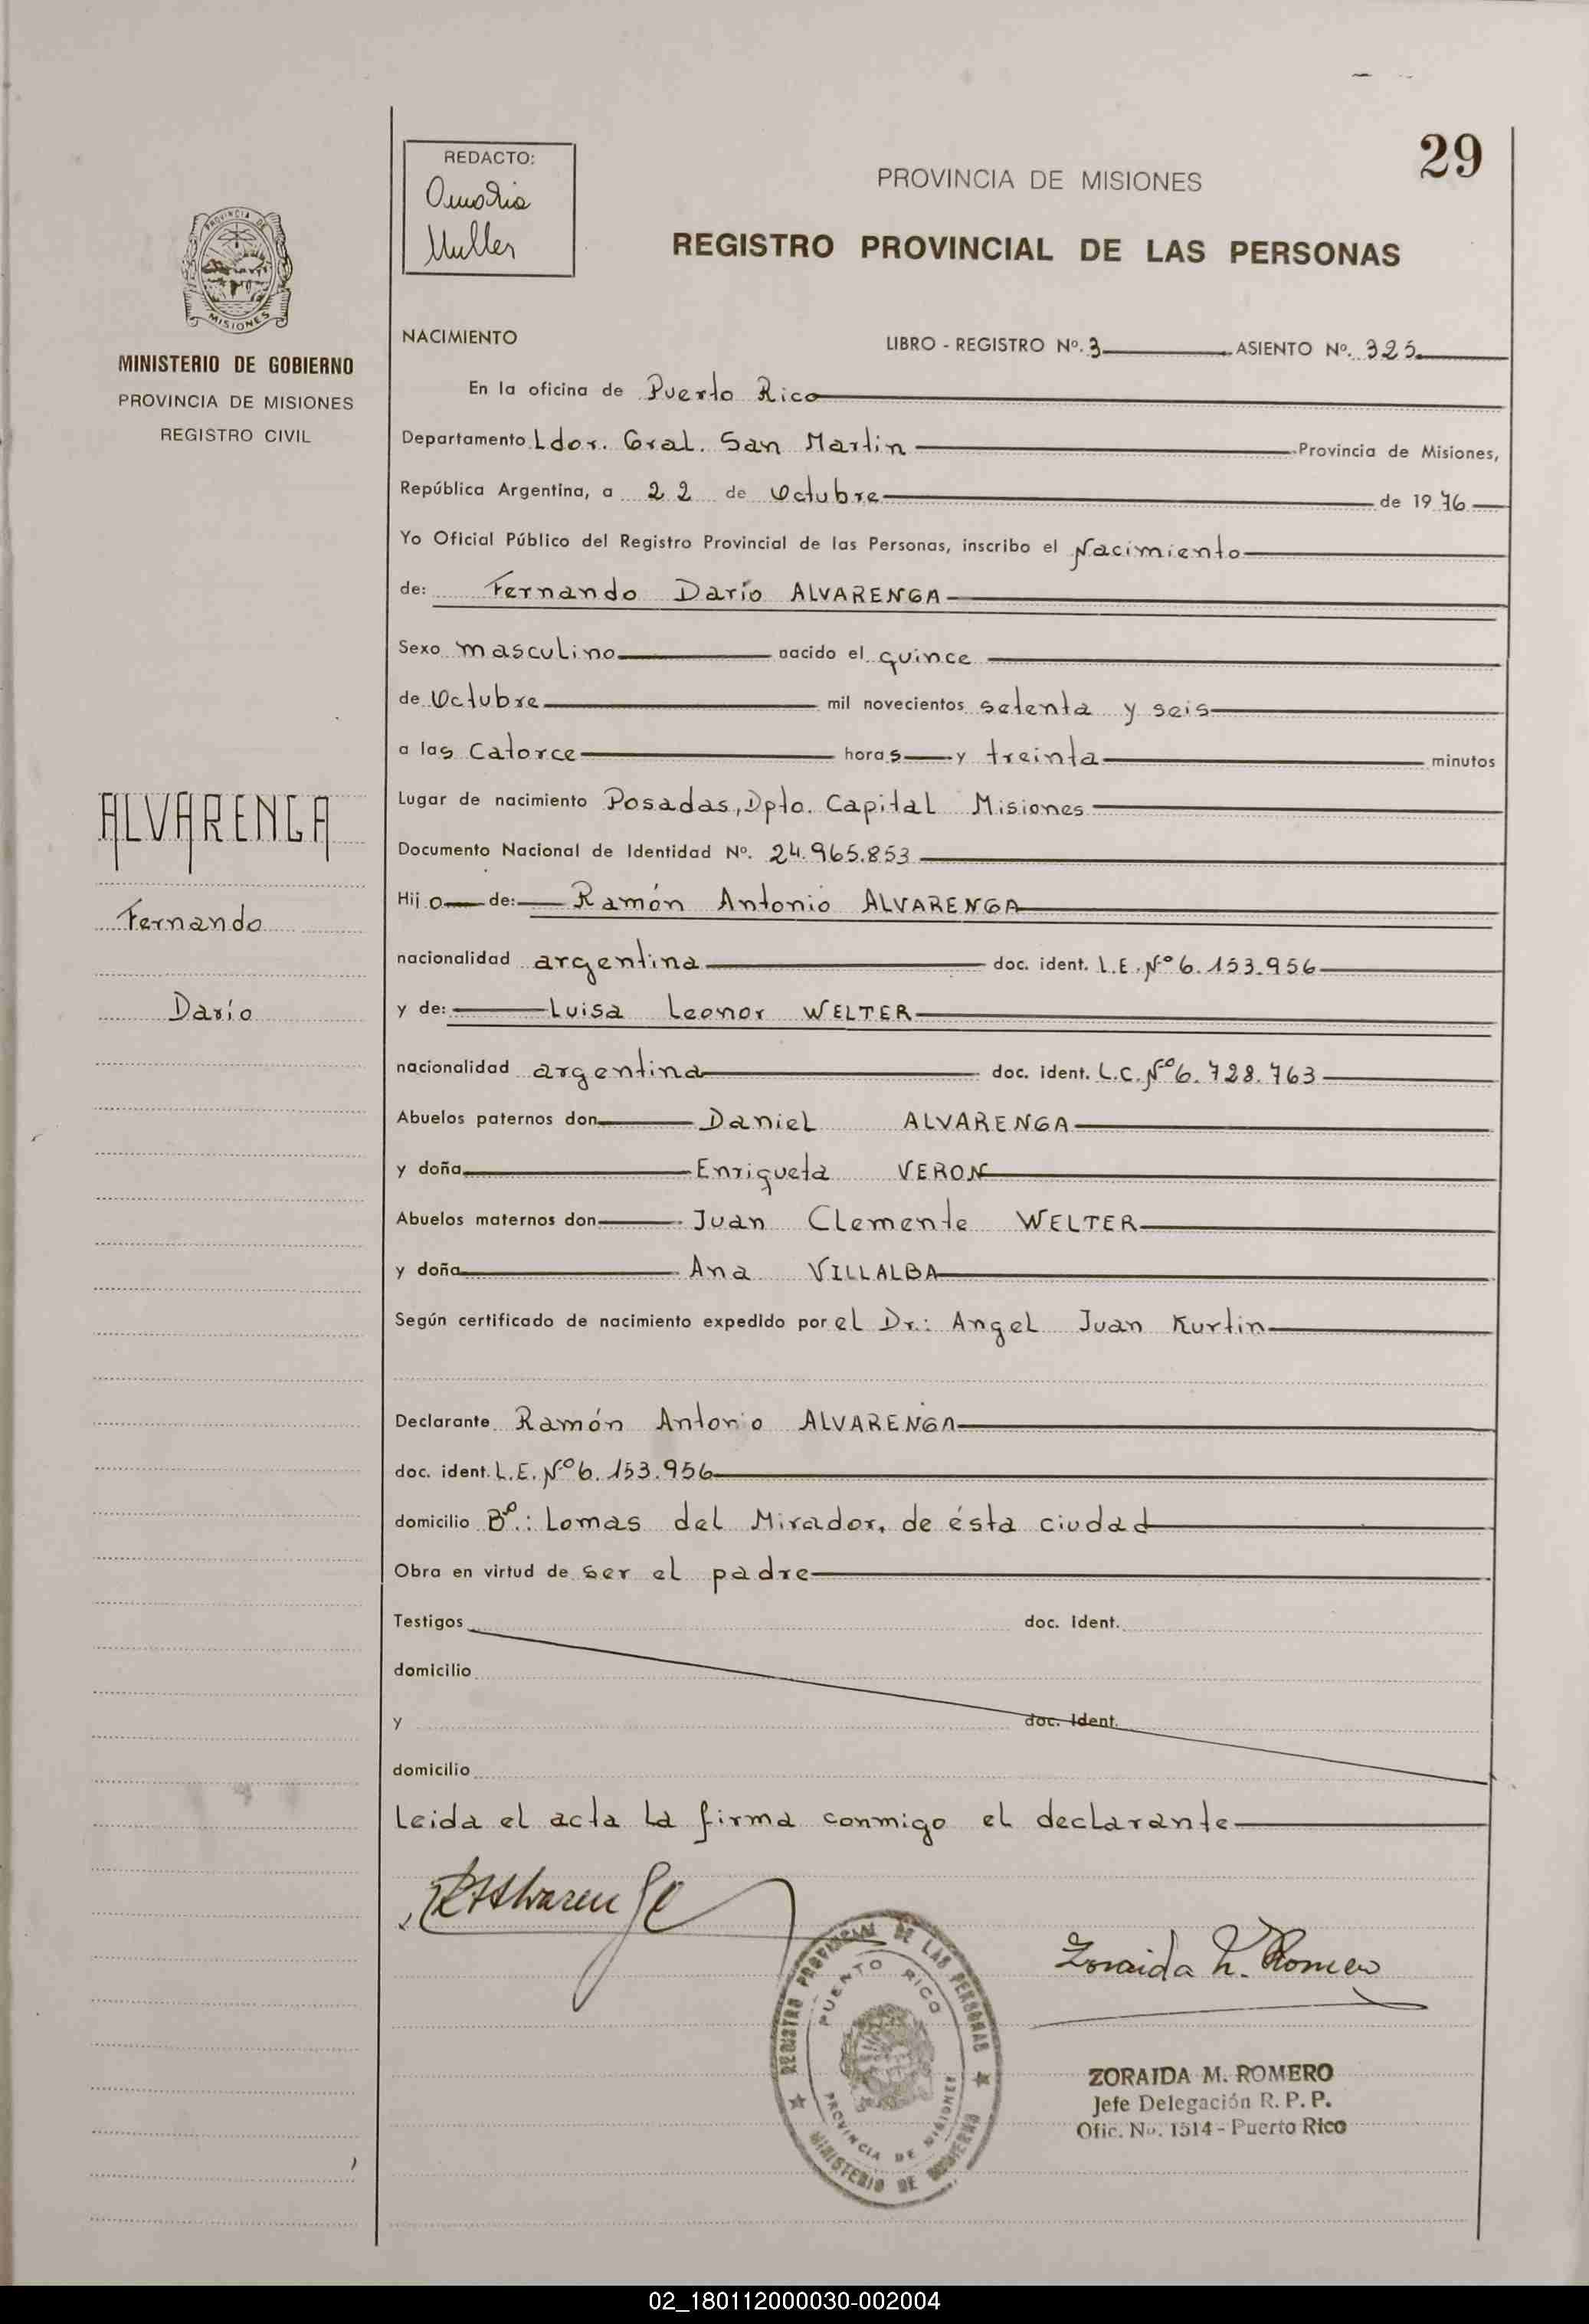 29
REDACTO:
Muller
PROVINCIA DE MISIONES
REGISTRO PROVINCIAL DE LAS PERSONAS
PROVINCIA DE
MISIONES
MINISTERIO DE GOBIERNO
PROVINCIA DE MISIONES
REGISTRO CIVIL
NACIMIENTO
LIBRO - REGISTRO Nº. 3 ASIENTO Nº. 325
En la oficina de Puerto Rico
Departamento Ldor. Gral. San Martin Provincia de Misiones,
República Argentina, a 22 de Octubre de 1976
Yo Oficial Público del Registro Provincial de las Personas, inscribo el Nacimiento
de: Fernando Darío ALVARENGA
Sexo masculino nacido el quince
de Octubre mil novecientos setenta y seis
a las Catorce horas y treinta minutos
Lugar de nacimiento Posadas, Dpto. Capital Misiones
Documento Nacional de Identidad Nº. 24.965.853
Hijo de: Ramón Antonio ALVARENGA
nacionalidad argentina doc. ident. L.E. Nº 6.153.956
y de: Luisa Leonor WELTER
nacionalidad argentina doc. ident. L.C. Nº 6.728.763
Abuelos paternos don Daniel ALVARENGA
y doña Enriqueta VERON
Abuelos maternos don Juan Clemente WELTER
y doña Ana VILLALBA
Según certificado de nacimiento expedido por el Dr.: Angel Juan Kurtin
Declarante Ramón Antonio ALVARENGA
doc. ident. L.E. Nº 6.153.956
domicilio Bº.: Lomas del Mirador, de ésta ciudad
Obra en virtud de ser el padre
Testigos doc. Ident.
domicilio
y doc. Ident.
domicilio
Leida el acta la firma conmigo el declarante
ALVARENGA
Fernando
Darío
RAAlvarenga
Zoraida M. Romero
REGISTRO PROVINCIAL DE LAS PERSONAS
PUERTO RICO
PROVINCIA DE MISIONES
MINISTERIO DE GOBIERNO
ZORAIDA M. ROMERO
Jefe Delegación R. P. P.
Ofic. No. 1514 - Puerto Rico
02_180112000030-002004